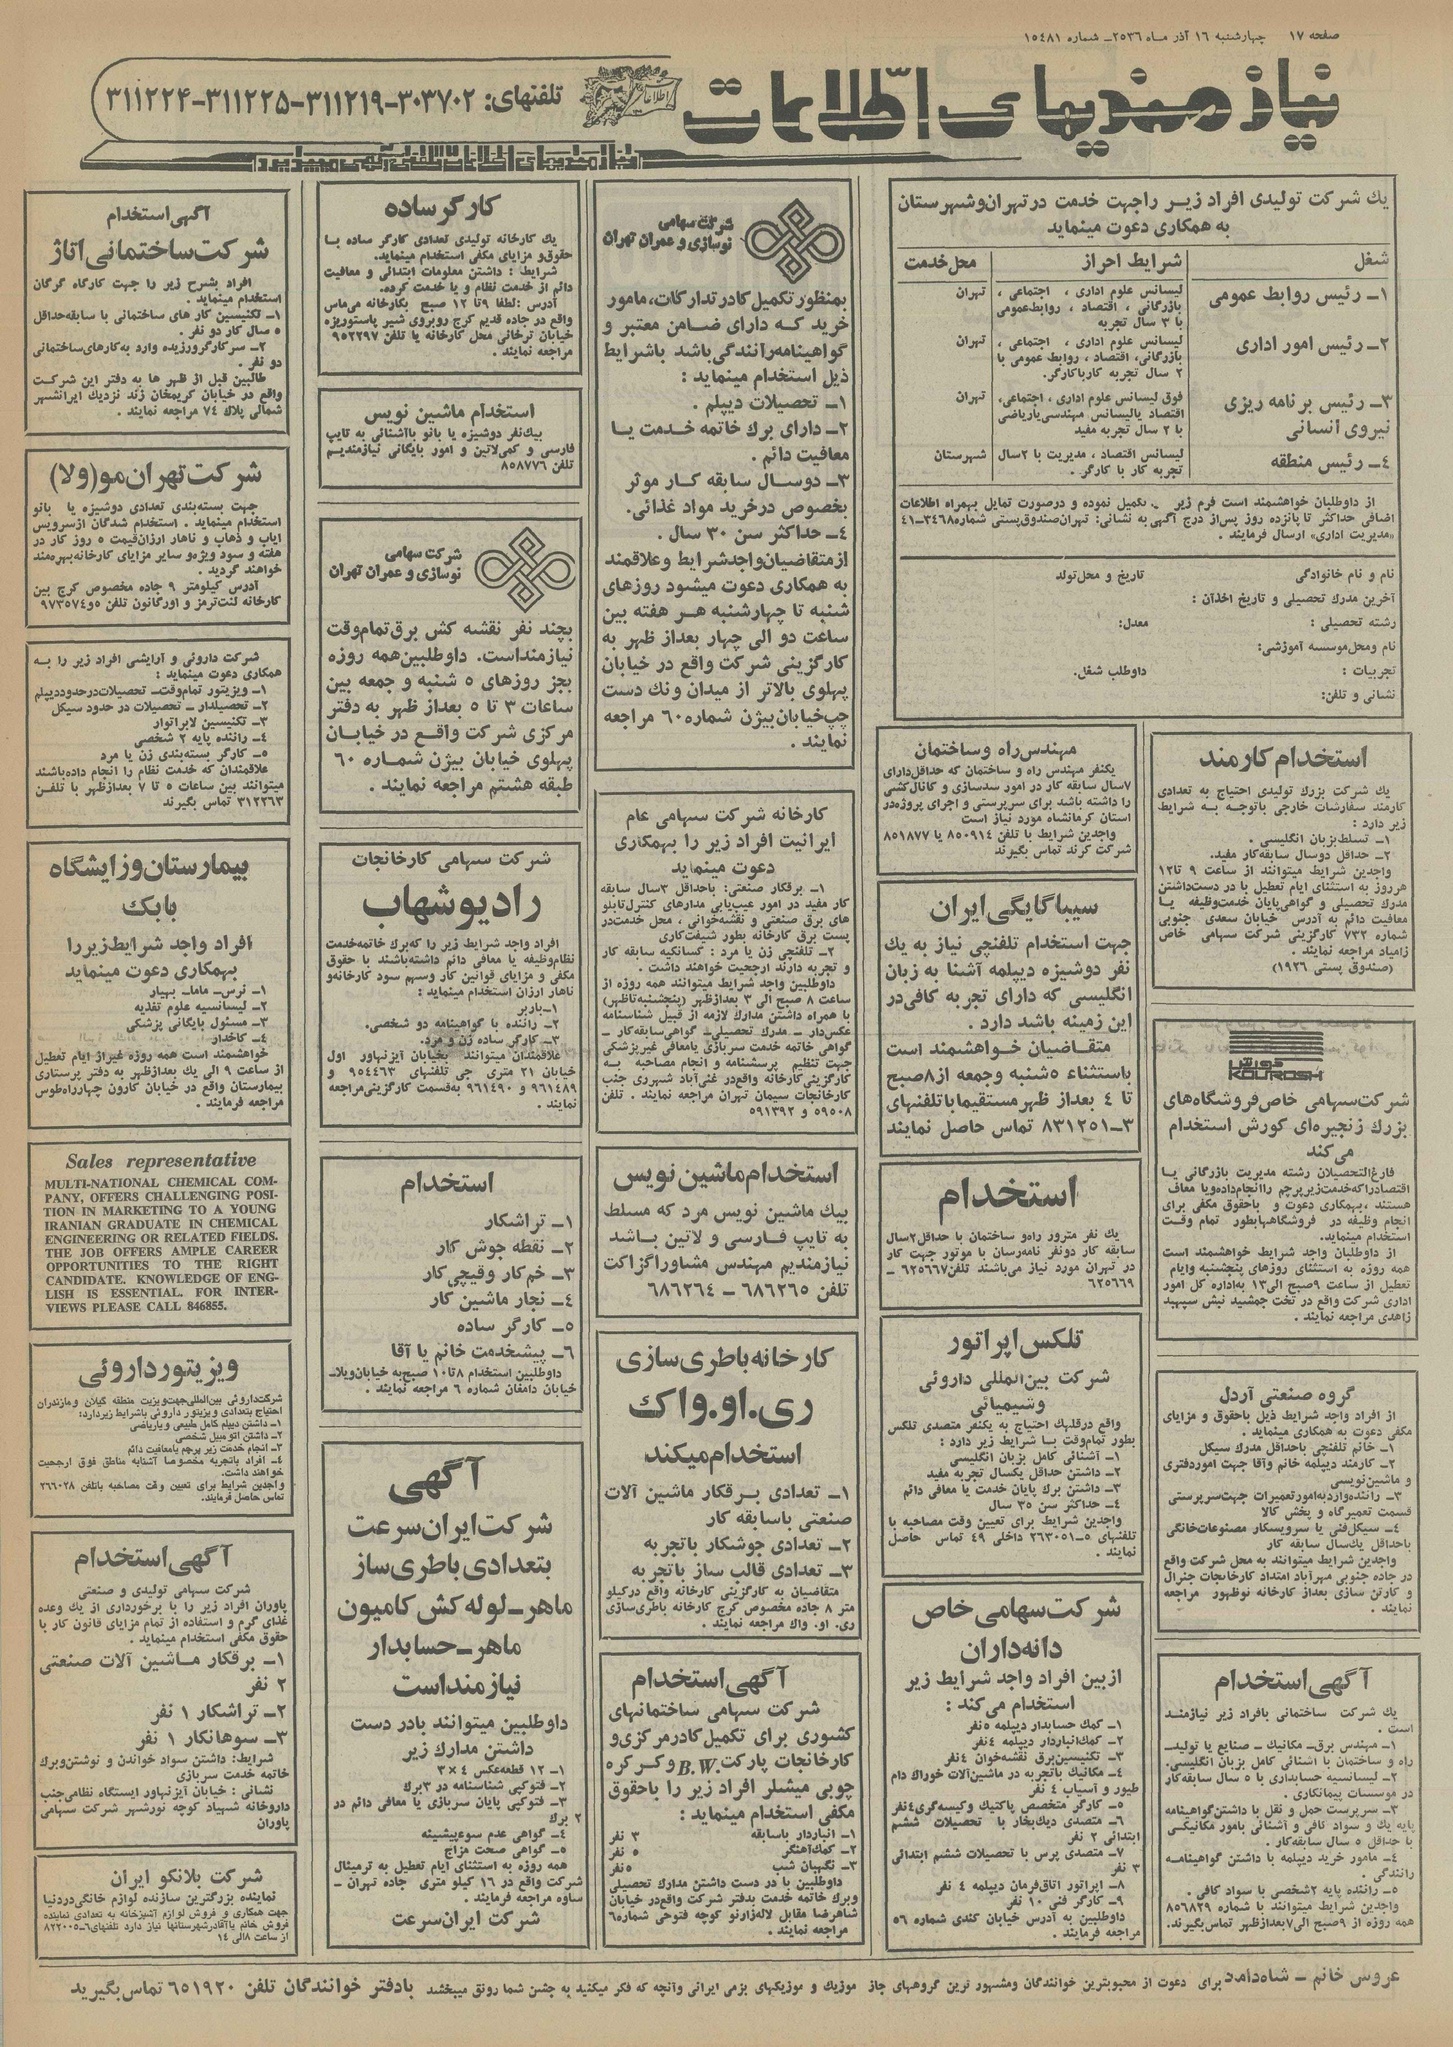 صفحه ۱۷ چهارشنبه ۱۶ آذر ماه ۲۵۳۶ـ شماره ۱۵۴۸۱
نیازمندیهای اطلاعات
تلفنهای: ۳۰۳۷۰۲-۳۱۱۲۱۹-۳۱۱۲۲۵-۳۱۱۲۲۴
یك شركت تولیدی افراد زیر را جهت خدمت در تهران و شهرستان
به همكاری دعوت مینماید
شغل شرایط احراز محل خدمت
۱ـ رئیس روابط عمومی لیسانس علوم اداری ، اجتماعی ، تهران
بازرگانی ، اقتصاد ، روابط عمومی
با ۳ سال تجربه
۲ـ رئیس امور اداری لیسانس علوم اداری ، اجتماعی ، تهران
بازرگانی، اقتصاد ، روابط عمومی با
۲ سال تجربه كار با كارگر.
۳ـ رئیس برنامه ریزی فوق لیسانس علوم اداری ، اجتماعی، تهران
نیروی انسانی اقتصاد یا لیسانس مهندسی یا ریاضی
با ۲ سال تجربه مفید
۴ـ رئیس منطقه لیسانس اقتصاد ، مدیریت با ۲ سال شهرستان
تجربه كار با كارگر .
از داوطلبان خواهشمند است فرم زیر تكمیل نموده و درصورت تمایل بهمراه اطلاعات
اضافی حداكثر تا پانزده روز پس از درج آگهی به نشانی: تهران صندوق پستی شماره ۳۴۶۸ـ۴۱
«مدیریت اداری» ارسال فرمایند .
نام و نام خانوادگی تاریخ و محل تولد
آخرین مدرك تحصیلی و تاریخ اخذ آن :
رشته تحصیلی : معدل:
نام ومحل موسسه آموزشی:
تجربیات : داوطلب شغل.
نشانی و تلفن:
استخدام كارمند
یك شركت بزرك تولیدی احتیاج به تعدادی
كارمند سفارشات خارجی باتوجه به شرایط
زیر دارد :
۱ـ تسلط بزبان انگلیسی .
۲ـ حداقل دوسال سابقه كار مفید.
واجدین شرایط میتوانند از ساعت ۹ تا ۱۲
هر روز به استثنای ایام تعطیل با در دست داشتن
مدرك تحصیلی و گواهی پایان خدمت وظیفه یا
معافیت دائم به آدرس خیابان سعدی جنوبی
شماره ۷۳۲ كارگزینی شركت سهامی خاص
زامیاد مراجعه نمایند .
(صندوق پستی ۱۹۳۶)
كورش
KOUROSH
شركت سهامی خاص فروشگاه های
بزرك زنجیره ای كورش استخدام
می كند
فارغ التحصیلان رشته مدیریت بازرگانی یا
اقتصاد را كه خدمت زیر پرچم را انجام داده ویا معاف
هستند ، بهمكاری دعوت و باحقوق مكفی برای
انجام وظیفه در فروشگاهها بطور تمام وقت
استخدام مینماید.
از داوطلبان واجد شرایط خواهشمند است
همه روزه به استثنای روزهای پنجشنبه و ایام
تعطیل از ساعت ۹ صبح الی ۱۳ به اداره كل امور
اداری شركت واقع در تخت جمشید نبش سپهبد
زاهدی مراجعه نمایند .
گروه صنعتی آردل
از افراد واجد شرایط ذیل باحقوق و مزایای
مكفی دعوت به همكاری مینماید .
۱ـ خانم تلفنچی باحداقل مدرك سیكل
۲ـ كارمند دیپلمه خانم وآقا جهت امور دفتری
و ماشین نویسی
۳ـ راننده وارد به امور تعمیرات جهت سرپرستی
قسمت تعمیرگاه و پخش كالا
۴ـ سیكل فنی یا سرویسكار مصنوعات خانگی
باحداقل یك سال سابقه كار
واجدین شرایط میتوانند به محل شركت واقع
در جاده جنوبی مهرآباد امتداد كارخانجات جنرال
و كارتن سازی بعد از كارخانه نوظهور مراجعه
نمایند .
آگهی استخدام
یك شركت ساختمانی بافراد زیر نیازمند
است .
۱ـ مهندس برق ـ مكانیك ـ صنایع یا تولید ـ
راه و ساختمان با آشنائی كامل بزبان انگلیسی.
۲ـ لیسانسیه حسابداری با ۵ سال سابقه كار
در موسسات پیمانكاری .
۳ـ سرپرست حمل و نقل با داشتن گواهینامه
پایه یك و سواد كافی و آشنائی بامور مكانیكی
با حداقل ۵ سال سابقه كار.
۴ـ مامور خرید دیپلمه با داشتن گواهینامه
رانندگی .
۵ـ راننده پایه ۲ شخصی با سواد كافی .
واجدین شرایط میتوانند با شماره ۸۵۶۸۲۹
همه روزه از ۹ صبح الی ۷ بعد از ظهر تماس بگیرند.
مهندس راه و ساختمان
یكنفر مهندس راه و ساختمان كه حداقل دارای
۷ سال سابقه كار در امور سدسازی و كانال كشی
را داشته باشد برای سرپرستی و اجرای پروژه در
استان كرمانشاه مورد نیاز است
واجدین شرایط با تلفن ۸۵۰۹۱۴ یا ۸۵۱۸۷۷
شركت كرند تماس بگیرند
سیبا گایگی ایران
جهت استخدام تلفنچی نیاز به یك
نفر دوشیزه دیپلمه آشنا به زبان
انگلیسی كه دارای تجربه كافی در
این زمینه باشد دارد .
متقاضیان خواهشمند است
باستثناء ۵ شنبه و جمعه از ۸ صبح
تا ۴ بعد از ظهر مستقیما با تلفنهای
۳ـ۸۳۱۲۵۱ تماس حاصل نمایند
استخدام
یك نفر مترور راه و ساختمان با حداقل ۲ سال
سابقه كار دو نفر نامه رسان با موتور جهت كار
در تهران مورد نیاز می باشند تلفن ۶۲۵۶۶۷ ـ
۶۲۵۶۶۹
تلكس اپراتور
شركت بین المللی داروئی
وشیمیائی
واقع در قلهك احتیاج به یكنفر متصدی تلكس
بطور تمام وقت با شرایط زیر دارد :
۱ـ آشنائی كامل بزبان انگلیسی
۲ـ داشتن حداقل یكسال تجربه مفید
۳ـ داشتن برك پایان خدمت یا معافی دائم
۴ـ حداكثر سن ۳۵ سال
واجدین شرایط برای تعیین وقت مصاحبه با
تلفنهای ۵ـ۲۶۳۰۵۱ داخلی ۴۹ تماس حاصل
نمایند .
شركت سهامی خاص
دانه داران
از بین افراد واجد شرایط زیر
استخدام می كند :
۱ـ كمك حسابدار دیپلمه ۵ نفر
۲ـ كمك انباردار دیپلمه ۴ نفر
۳ـ تكنیسین برق نقشه خوان ۴ نفر
۴ـ مكانیك باتجربه در ماشین آلات خوراك دام
طیور و آسیاب ۴ نفر
۵ـ كارگر متخصص پاكتیك و كیسه گری ۴ نفر
۶ـ متصدی دیك بخار با تحصیلات ششم
ابتدائی ۲ نفر
۷ـ متصدی پرس با تحصیلات ششم ابتدائی
۳ نفر
۸ـ اپراتور اتاق فرمان دیپلمه ۴ نفر
۹ـ كارگر فنی ۱۰ نفر
داوطلبین به آدرس خیابان كندی شماره ۵۶
مراجعه فرمایند .
شركت سهامی
نوسازی و عمران تهران
بمنظور تكمیل كادر تداركات، مامور
خرید كه دارای ضامن معتبر و
گواهینامه رانندگی باشد باشرایط
ذیل استخدام مینماید :
۱ـ تحصیلات دیپلم .
۲ـ دارای برك خاتمه خدمت یا
معافیت دائم .
۳ـ دوسال سابقه كار موثر
بخصوص در خرید مواد غذائی.
۴ـ حداكثر سن ۳۰ سال .
از متقاضیان واجد شرایط و علاقمند
به همكاری دعوت میشود روزهای
شنبه تا چهارشنبه هر هفته بین
ساعت دو الی چهار بعد از ظهر به
كارگزینی شركت واقع در خیابان
پهلوی بالاتر از میدان ونك دست
چپ خیابان بیژن شماره ۶۰ مراجعه
نمایند .
كارخانه شركت سهامی عام
ایرانیت افراد زیر را بهمكاری
دعوت مینماید
۱ـ برقكار صنعتی: باحداقل ۳ سال سابقه
كار مفید در امور عیب یابی مدارهای كنترل تابلو
های برق صنعتی و نقشه خوانی ، محل خدمت در
پست برق كارخانه بطور شیفت كاری
۲ـ تلفنچی زن یا مرد : كسانیكه سابقه كار
و تجربه دارند ارجحیت خواهند داشت .
داوطلبین واجد شرایط میتوانند همه روزه از
ساعت ۸ صبح الی ۳ بعد از ظهر (پنجشنبه تا ظهر)
با همراه داشتن مدارك لازمه از قبیل شناسنامه
عكس دار ـ مدرك تحصیلی ـ گواهی سابقه كار ـ
گواهی خاتمه خدمت سربازی یا معافی غیر پزشكی
جهت تنظیم پرسشنامه و انجام مصاحبه به
كارگزینی كارخانه واقع در غنی آباد شهرری جنب
كارخانجات سیمان تهران مراجعه نمایند . تلفن
۵۹۵۰۸ و ۵۹۱۳۹۲
استخدام ماشین نویس
بیك ماشین نویس مرد كه مسلط
به تایپ فارسی و لاتین باشد
نیازمندیم مهندس مشاور اگزاكت
تلفن ۶۸۶۲۶۵ ـ ۶۸۶۲۶۴
كارخانه باطری سازی
ری.او.واك
استخدام میكند
۱ـ تعدادی برقكار ماشین آلات
صنعتی باسابقه كار
۲ـ تعدادی جوشكار باتجربه
۳ـ تعدادی قالب ساز باتجربه
متقاضیان به كارگزینی كارخانه واقع در كیلو
متر ۸ جاده مخصوص كرج كارخانه باطری سازی
ری. او. واك مراجعه نمایند .
آگهی استخدام
شركت سهامی ساختمانهای
كشوری برای تكمیل كادر مركزی و
كارخانجات پاركت B.W. و كركره
چوبی میشلر افراد زیر را باحقوق
مكفی استخدام مینماید :
۱ـ انباردار باسابقه ۳ نفر
۲ـ كمك آهنگر ۵ نفر
۳ـ نگهبان شب ۵ نفر
داوطلبین با در دست داشتن مدارك تحصیلی
وبرك خاتمه خدمت بدفتر شركت واقع در خیابان
شاهرضا مقابل لاله زار نو كوچه فتوحی شماره ۶
مراجعه نمایند .
كارگر ساده
یك كارخانه تولیدی تعدادی كارگر ساده با
حقوق و مزایای مكفی استخدام مینماید.
شرایط : داشتن معلومات ابتدائی و معافیت
دائم از خدمت نظام و یا خدمت كرده.
آدرس: لطفا ۹ تا ۱۲ صبح بكارخانه می ماس
واقع در جاده قدیم كرج روبروی شیر پاستوریزه
خیابان ترخانی محل كارخانه یا تلفن ۹۵۲۲۹۷
مراجعه نمایند .
استخدام ماشین نویس
بیك نفر دوشیزه یا بانو باآشنائی به تایپ
فارسی و كمی لاتین و امور بایگانی نیازمندیم
تلفن ۸۵۸۷۷۶
شركت سهامی
نوسازی و عمران تهران
بچند نفر نقشه كش برق تمام وقت
نیازمند است. داوطلبین همه روزه
بجز روزهای ۵ شنبه و جمعه بین
ساعات ۳ تا ۵ بعد از ظهر به دفتر
مركزی شركت واقع در خیابان
پهلوی خیابان بیژن شماره ۶۰
طبقه هشتم مراجعه نمایند .
شركت سهامی كارخانجات
رادیو شهاب
افراد واجد شرایط زیر را كه برك خاتمه خدمت
نظام وظیفه یا معافی دائم داشته باشند با حقوق
مكفی و مزایای قوانین كار وسهم سود كارخانه و
ناهار ارزان استخدام مینماید :
۱ـ باربر
۲ـ راننده با گواهینامه دو شخصی.
۳ـ كارگر ساده زن و مرد.
علاقمندان میتوانند بخیابان آیزنهاور اول
خیابان ۲۱ متری جی تلفنهای ۹۵۴۴۶۳ و
۹۶۱۴۸۹ و ۹۶۱۴۹۰ به قسمت كارگزینی مراجعه
نمایند .
استخدام
۱ـ تراشكار
۲ـ نقطه جوش كار
۳ـ خم كار و قیچی كار
۴ـ نجار ماشین كار
۵ـ كارگر ساده
۶ـ پیشخدمت خانم یا آقا
داوطلبین استخدام ۸ تا ۱۰ صبح به خیابان ویلا ـ
خیابان دامغان شماره ۶ مراجعه نمایند .
آگهی
شركت ایران سرعت
بتعدادی باطری ساز
ماهر ـ لوله كش كامیون
ماهر ـ حسابدار
نیازمند است
داوطلبین میتوانند با در دست
داشتن مدارك زیر
۱ـ ۱۲ قطعه عكس ۴ × ۳
۲ـ فتوكپی شناسنامه در ۳ برك
۳ـ فتوكپی پایان سربازی یا معافی دائم در
۲ برك
۴ـ گواهی عدم سوء پیشینه
۵ـ گواهی صحت مزاج
همه روزه به استثنای ایام تعطیل به ترمینال
شركت واقع در ۱۶ كیلو متری جاده تهران ـ
ساوه مراجعه فرمایند .
شركت ایران سرعت
آگهی استخدام
شركت ساختمانی آتاژ
افراد بشرح زیر را جهت كارگاه گرگان
استخدام مینماید .
۱ـ تكنیسین كار های ساختمانی با سابقه حداقل
۵ سال كار دو نفر .
۲ـ سركارگر ورزیده وارد به كارهای ساختمانی
دو نفر .
طالبین قبل از ظهر ها به دفتر این شركت
واقع در خیابان كریمخان زند نزدیك ایرانشهر
شمالی پلاك ۷۴ مراجعه نمایند .
شركت تهران مو (ولا)
جهت بسته بندی تعدادی دوشیزه یا بانو
استخدام مینماید . استخدام شدگان از سرویس
ایاب و ذهاب و ناهار ارزان قیمت ۵ روز كار در
هفته و سود ویژه و سایر مزایای كارخانه بهره مند
خواهند گردید .
آدرس كیلومتر ۹ جاده مخصوص كرج بین
كارخانه لنت ترمز و اورگانون تلفن ۵و۹۷۳۵۷۴
شركت داروئی و آرایشی افراد زیر را به
همكاری دعوت مینماید :
۱ـ ویزیتور تمام وقت ـ تحصیلات در حدود دیپلم
۲ـ تحصیلدار ـ تحصیلات در حدود سیكل
۳ـ تكنیسین لابراتوار
۴ـ راننده پایه ۲ شخصی
۵ـ كارگر بسته بندی زن یا مرد
علاقمندان كه خدمت نظام را انجام داده باشند
میتوانند بین ساعات ۵ تا ۷ بعد از ظهر با تلفن
۳۱۲۳۶۳ تماس بگیرند
بیمارستان و زایشگاه
بابك
افراد واجد شرایط زیر را
بهمكاری دعوت مینماید
۱ـ نرس ـ ماما ـ بهیار
۲ـ لیسانسیه علوم تغذیه
۳ـ مسئول بایگانی پزشكی
۴ـ كاخدار
خواهشمند است همه روزه غیر از ایام تعطیل
از ساعت ۹ الی یك بعد از ظهر به دفتر پرستاری
بیمارستان واقع در خیابان كارون چهارراه طوس
مراجعه فرمایند .
Sales representative
MULTI-NATIONAL CHEMICAL COM-
PANY, OFFERS CHALLENGING POSI-
TION IN MARKETING TO A YOUNG
IRANIAN GRADUATE IN CHEMICAL
ENGINEERING OR RELATED FIELDS.
THE JOB OFFERS AMPLE CAREER
OPPORTUNITIES TO THE RIGHT
CANDIDATE. KNOWLEDGE OF ENG-
LISH IS ESSENTIAL. FOR INTER-
VIEWS PLEASE CALL 846855.
ویزیتور داروئی
شركت داروئی بین المللی جهت ویزیت منطقه گیلان و مازندران
احتیاج بتعدادی ویزیتور داروئی باشرایط زیر دارد:
۱ـ داشتن دیپلم كامل طبیعی و یا ریاضی
۲ـ داشتن اتومبیل شخصی
۳ـ انجام خدمت زیر پرچم یا معافیت دائم
۴ـ افراد باتجربه مخصوصا آشنا به مناطق فوق ارجحیت
خواهند داشت.
واجدین شرایط برای تعیین وقت مصاحبه باتلفن ۲۶۶۰۲۸
تماس حاصل فرمایند.
آگهی استخدام
شركت سهامی تولیدی و صنعتی
پاوران افراد زیر را با برخورداری از یك وعده
غذای گرم و استفاده از تمام مزایای قانون كار با
حقوق مكفی استخدام مینماید .
۱ـ برقكار ماشین آلات صنعتی
۲ نفر
۲ـ تراشكار ۱ نفر
۳ـ سوهانكار ۱ نفر
شرایط: داشتن سواد خواندن و نوشتن وبرك
خاتمه خدمت سربازی
نشانی : خیابان آیزنهاور ایستگاه نظامی جنب
داروخانه شهیاد كوچه نورشهر شركت سهامی
پاوران
شركت بلانكو ایران
نماینده بزرگترین سازنده لوازم خانگی در دنیا
جهت همكاری و فروش لوازم آشپزخانه به تعدادی نماینده
فروش خانم یا آقا در شهرستانها نیاز دارد تلفنهای ۶ـ۸۲۲۰۰۵
از ساعت ۸ الی ۱۴
عروس خانم ـ شاه داماد برای دعوت از محبوبترین خوانندگان و مشهور ترین گروههای جاز موزیك و موزیكهای بزمی ایرانی وآنچه كه فكر میكنید به جشن شما رونق میبخشد بادفتر خوانندگان تلفن ۶۵۱۹۲۰ تماس بگیرید